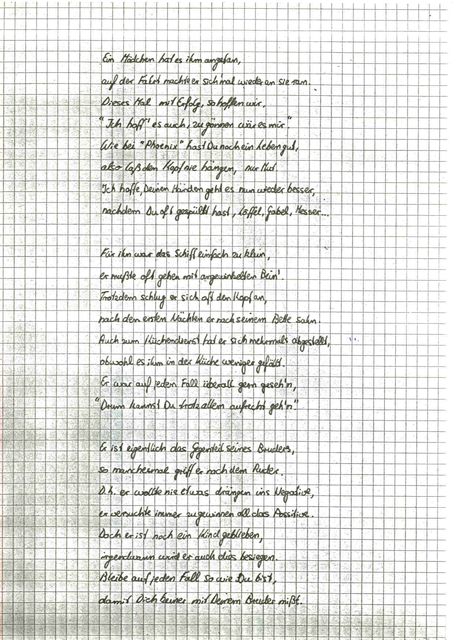 Ein Mädchen hat es ihm angetan,
auf der Fahrt machte er sich 'mal wieder an sie ran.
Dieses Mal mit Erfolg, so hoffen wir.
"Ich hoff' es auch, zu gönnen wär es mir."
Wie bei "Phoenix" hast Du noch ein Leben gut,
also laß den Kopf nie hängen, nur Mut.
Ich hoffe, Deinen Händen geht es nun wieder besser,
nachdem Du oft gespült hast, Löffel, Gabel, Messer...
Für ihn war das Schiff einfach zu klein,
er mußte oft gehen mit angewinkelten Bein'.
Trotzdem schlug er sich oft den Kopf an,
nach den ersten Nächten er nach seinem Bette sann.
Auch zum Küchendienst hat er sich mehrmals abgestellt,
obwohl es ihm in der Küche weniger gefällt.
Er war auf jedem Fall überall gern geseh'n,
"Drum kannst Du trotz allem aufrecht geh'n."
Er ist eigentlich das Gegenteil seines Bruders,
so manchesmal griff er nach dem Ruder.
D.h. er wollte nie etwas drängen ins Negative,
er versuchte immer zu gewinnen all das Positive.
Doch er ist noch ein Kind geblieben,
irgendwann wird er auch das besiegen.
Bleibe auf jeden Fall so wie Du bist,
damit Dich keiner mit Deinem Bruder mißt.